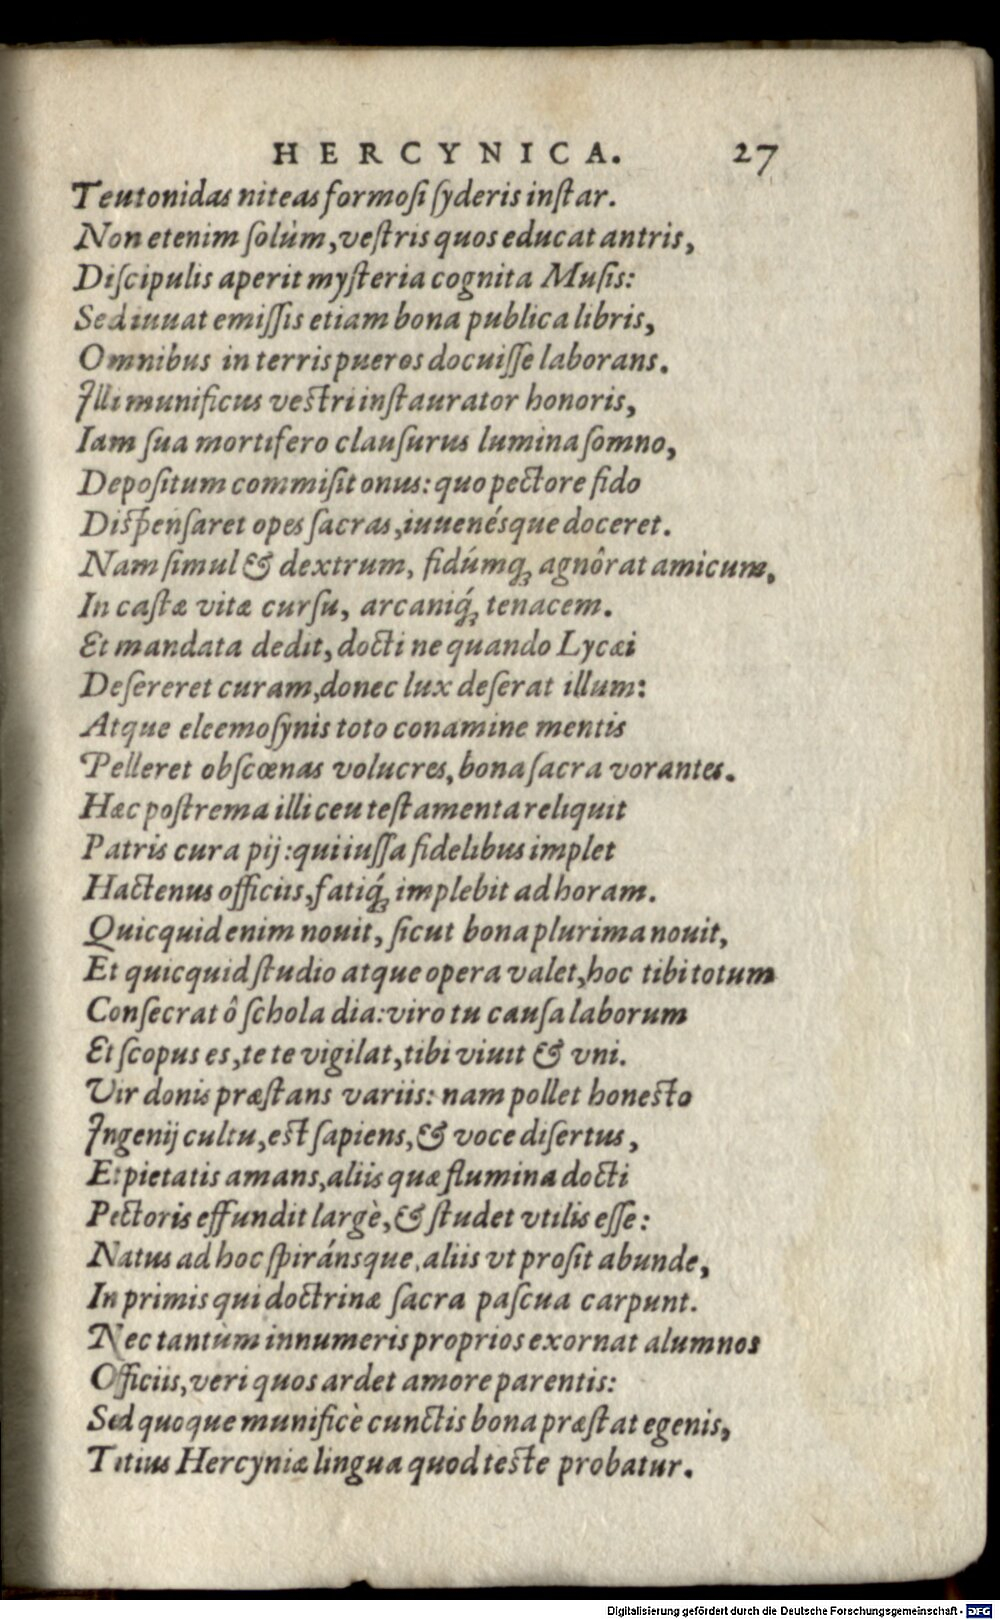 HERCYNICA. 27
Teutonidas niteas formosi syderis instar.
Non etenim solùm, vestris quos educat antris,
Discipulis aperit mysteria cognita Musis:
Sed iuuat emissis etiam bona publica libris,
Omnibus in terris pueros docuisse laborans.
Illi munificus vestri instaurator honoris,
Iam sua mortifero clausurus lumina somno,
Depositum commisit onus: quo pectore fido
Dispensaret opes sacras, iuuenésque doceret.
Nam simul & dextrum, fidúmq́; agnôrat amicum,
In castæ vitæ cursu, arcaniq́; tenacem.
Et mandata dedit, docti ne quando Lycæi
Desereret curam, donec lux deserat illum:
Atque eleemosynis toto conamine mentis
Pelleret obscœnas volucres, bona sacra vorantes.
Hæc postrema illi ceu testamenta reliquit
Patris cura pij: qui iussa fidelibus implet
Hactenus officiis, fatiq́; implebit ad horam.
Quicquid enim nouit, sicut bona plurima nouit,
Et quicquid studio atque opera valet, hoc tibi totum
Consecrat ô schola dia: viro tu causa laborum
Et scopus es, te te vigilat, tibi viuit & vni.
Vir donis præstans variis: nam pollet honesto
Ingenij cultu, est sapiens, & voce disertus,
Et pietatis amans, aliis quæ flumina docti
Pectoris effundit largè, & studet vtilis esse:
Natus ad hoc spiránsque, aliis vt prosit abunde,
In primis qui doctrinæ sacra pascua carpunt.
Nec tantùm innumeris proprios exornat alumnos
Officiis, veri quos ardet amore parentis:
Sed quoque munificè cunctis bona præstat egenis,
Titius Hercyniæ lingua quod teste probatur.
Digitalisierung gefördert durch die Deutsche Forschungsgemeinschaft - DFG